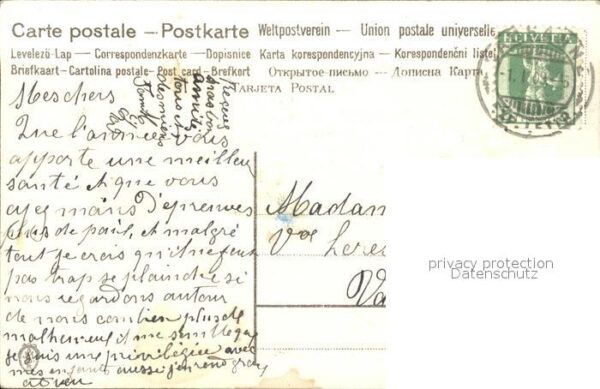 Carte postale — Postkarte Weltpostverein — Union postale universelle
Levelező-Lap — Correspondenzkarte — Dopisnice Karta korespondencyjna — Korespondenční listek
Briefkaart - Cartolina postale - Post card - Brefkort Открытое-письмо — Дописна Карта
TARJETA POSTAL
HELVETIA
Mes chers
Que l'année vous
apporte une meilleur
santé et que vous
ayez moins d'épreuves
plus de paix, et malgré
tout je crois qu'il ne faut
pas trop se plaindre si
nous regardons autour
de nous combien plus de
malheureux il me semble que
je suis une privilégiée avec
mes enfants aussi j'en rend grâce
à Dieu
Madam
Vve
Va
privacy protection
Datenschutz